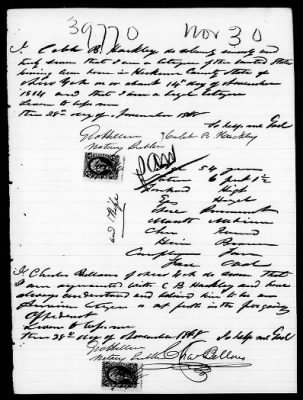 39770 Nov 30
I, Caleb B. Hackley do solemnly swear and
that I am a Citizen of the United States
having been born in Herkimer County State of
New York on or about 14th day of November
1814 and that I am a legal Citizen
Sworn to before me
this 28th day of November 1868 So help me God
Geo Hillen Caleb B Hackley
Notary Public
Age 54 years
6 feet 1 1/2
Forehead High
Eyes Hazel
Nose Prominent
Mouth Medium
Chin Round
Hair Brown
Complex Fair
Face
and Wife
I Charles Bellows of New York do swear that
I am acquainted with C B Hackley and have
always understood and believed him to be an
American Citizen as set forth in the foregoing
Affidavit
Sworn to before me
this 28th day of November 1868 So help me God
Geo Hillen
Notary Public Chas Bellows